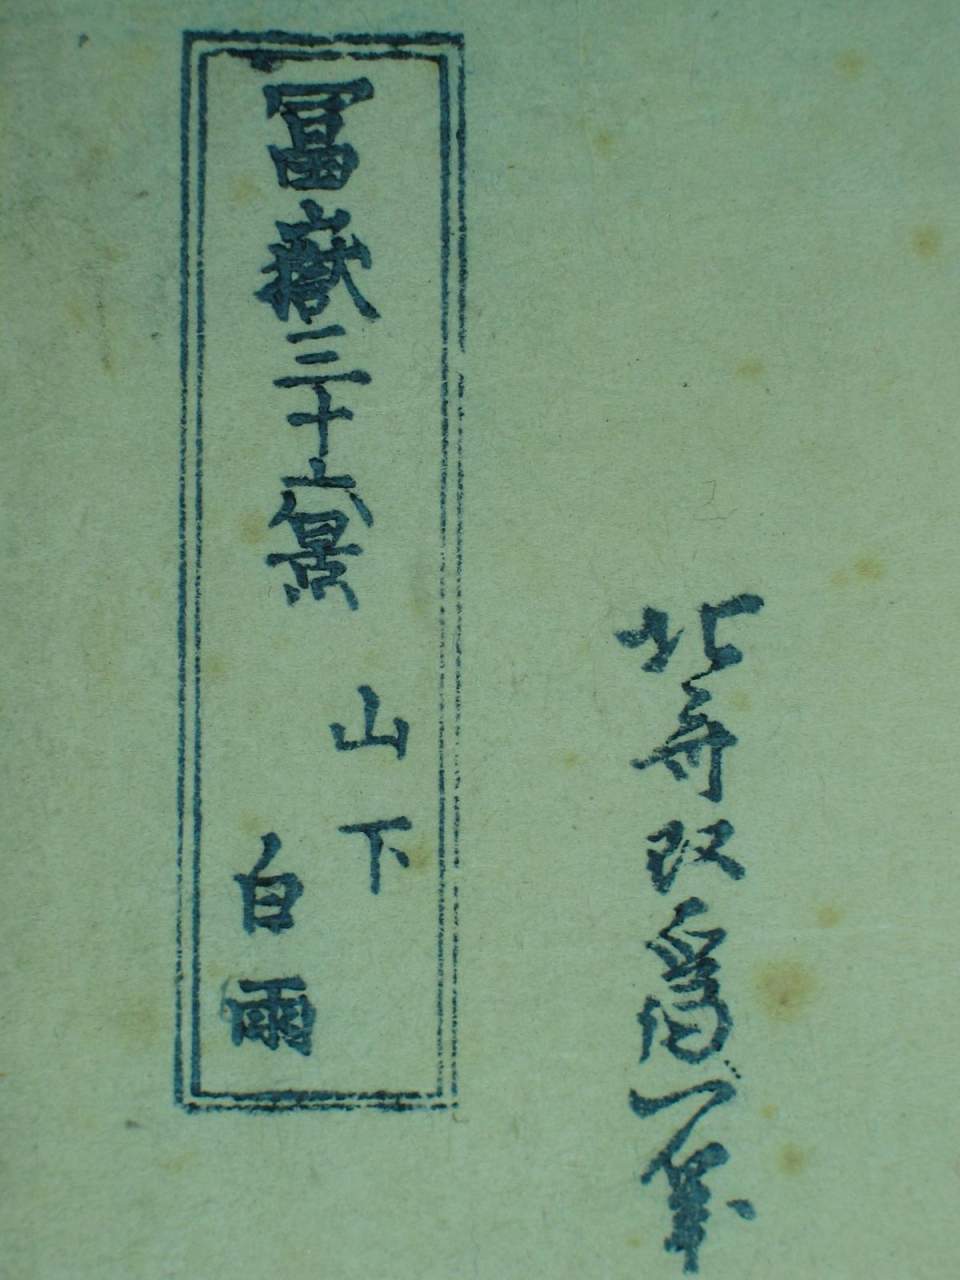 北斎改為一筆
冨嶽三十六景
山下
白雨